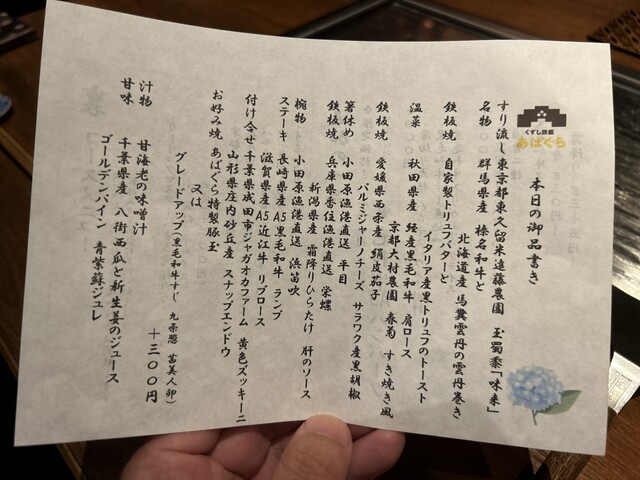 くずし鉄板
あばぐら
本日の御品書き
すり流し 東京都東久留米遠藤農園 玉蜀黍「味来」
名物 群馬県産 榛名和牛と
北海道産 馬糞雲丹の雲丹巻き
鉄板焼 自家製トリュフバターと
イタリア産黒トリュフのトースト
温菜 秋田県産 経産黒毛和牛 肩ロース
京都大村農園 春菊 すき焼き風
鉄板焼 愛媛県西条産 絹皮茄子
パルミジャーノチーズ サラワク産黒胡椒
箸休め 小田原漁港直送 平目
鉄板焼 兵庫県香住漁港直送 栄螺
新潟県産 霜降りひらたけ 肝のソース
椀物 小田原漁港直送 浜笛吹
ステーキ 長崎県産A5黒毛和牛 ランプ
滋賀県産A5近江牛 リブロース
付け合せ 千葉県成田市ジャガオカファーム 黄色ズッキーニ
山形県庄内砂丘産 スナップエンドウ
お好み焼 あばぐら特製豚玉
又は
グレードアップ(黒毛和牛すじ 九条葱 苗美人卵)
+300円
汁物 甘海老の味噌汁
甘味 千葉県産 八街西瓜と新生姜のジュース
ゴールデンパイン 青紫蘇ジュレ